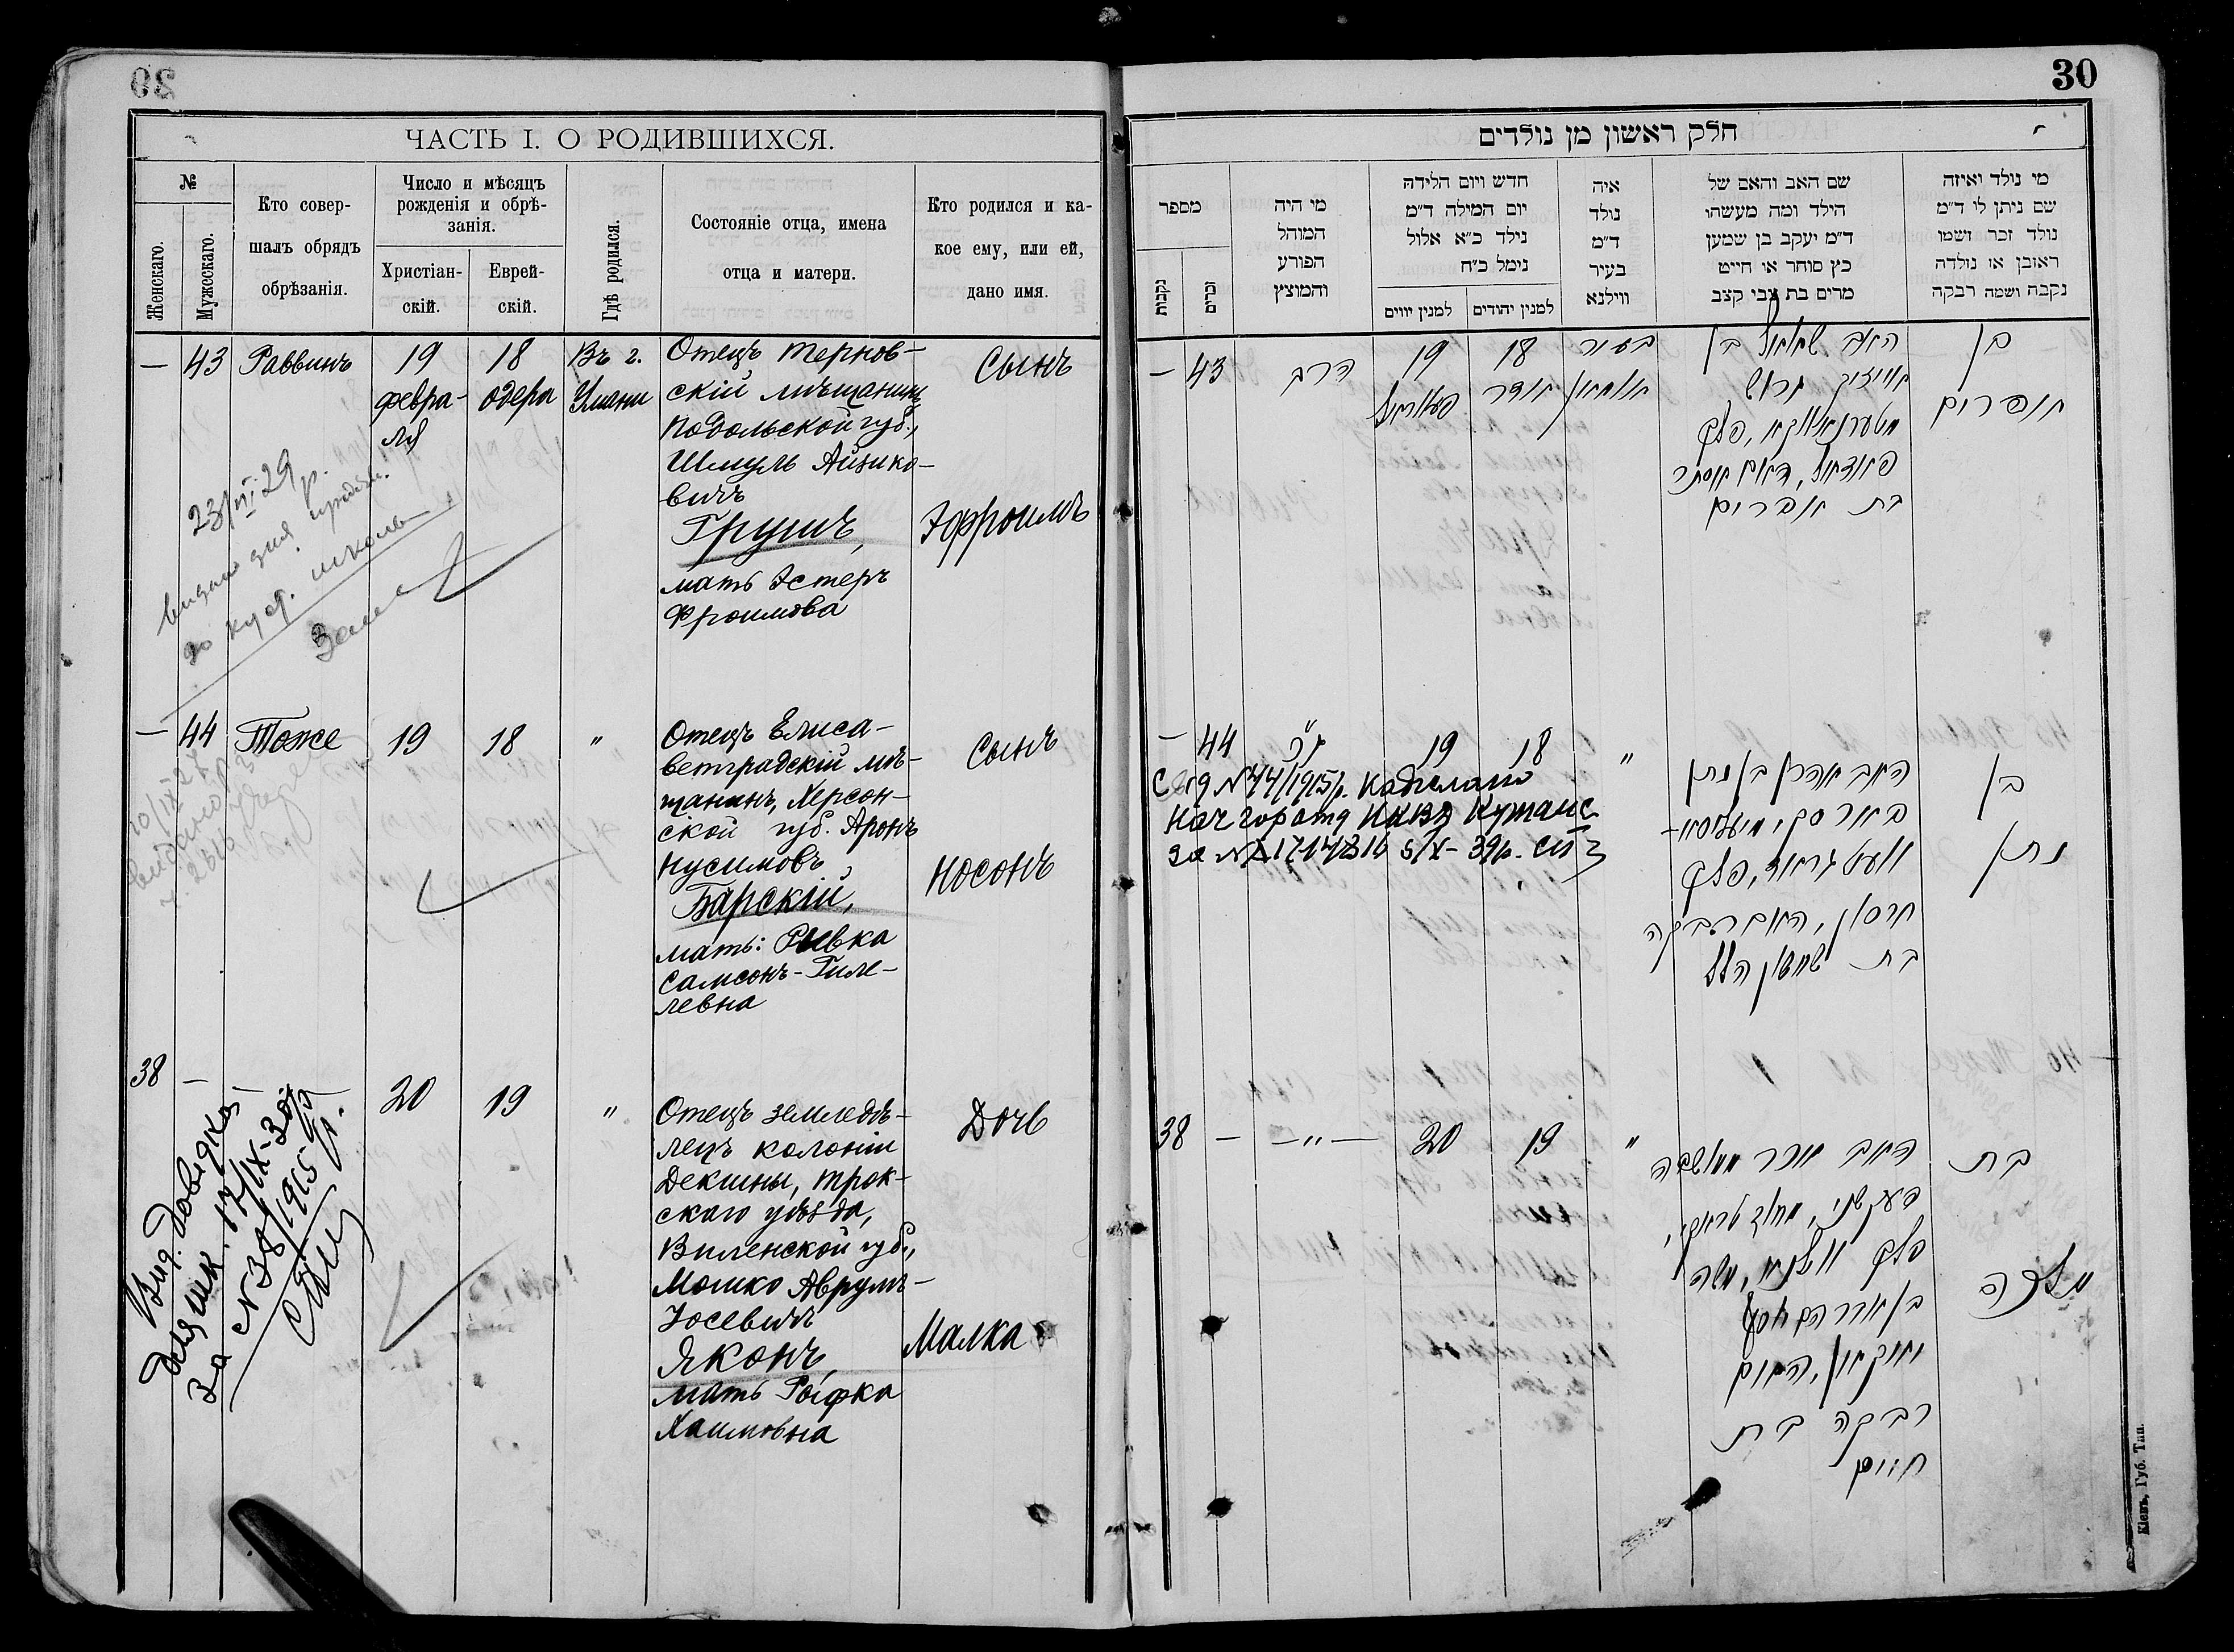 30
ЧАСТЬ I. О РОДИВШИХСЯ.
№
Женскаго.
Мужескаго.
Кто совер-
шалъ обрядъ
обрѣзанія.
Число и мѣсяцъ
рожденія и обрѣ-
занія.
Христіан-
скій.
Еврей-
скій.
Гдѣ родился.
Состояніе отца, имена
отца и матери.
Кто родился и ка-
кое ему, или ей,
дано имя.
— 43 Раввинъ
19
февра-
ля
18
одера
Въ г.
Умани
Отецъ Тернов-
скій мѣщанинъ
Подольской губ.,
Шмуль Айзико-
вичъ
Грушъ,
мать Эстеръ
Фроимова
Сынъ
Эфроимъ
23/VI 29 р.
школи
— 44 Тоже 19 18 "
Отецъ Елиса-
ветградскій мѣ-
щанинъ, Херсон-
ской губ. Аронъ
Нусимовъ
Барскій,
мать: Рывка
Самсонъ-Гиле-
левна
Сынъ
Носонъ
38 — 20 19 "
Отецъ земледѣ-
лецъ колоніи
Декшны, Трок-
скаго уѣзда,
Виленской губ.,
Мошко Аврумъ-
Іосевичъ
Яконъ,
мать Рыфка
Хаимовна
Дочь
Малка
Вид. довідка
для шк. 17/IX-30р
за N 38/1915 р.
חלק ראשון מן נולדים
מספר
נקבות
זכרים
מי היה
המוהל
הפורע
והמוצץ
חדש ויום הלידה
יום המילה ד״מ
נילד כ״א אלול
נימל כ״ח
למנין יווים
למנין יהודים
איה
נולד
ד״מ
בעיר
ווילנא
שם האב והאם של
הילד ומה מעשהו
ד״מ יעקב בן שמען
כץ סוחר או חייט
מרים בת צבי קצב
מי נולד ואיזה
שם ניתן לו ד״מ
נולד זכר ושמו
ראובן או נולדה
נקבה ושמה רבקה
— 43 הרב
19
פעברואל
18
אדר
בעיר
אומאן
האב שמואל בן
אייזיק גרוש
פאדאל, האם אסתר
בת אפרים
בן
אפרים
— 44 19 18 "
N 44/1915р. надіслано
НКВД
האב אהרן בן נתן
חרסון, האם רבקה
בת שמשון הלל
בן
נתן
38 — —"— 20 19 "
האב אכר
פלך ווילנא, משה
בן אברהם יוסף
יאקאן, האם
רבקה בת
חיים
בת
מלכה
Кіевъ, Губ. Тип.